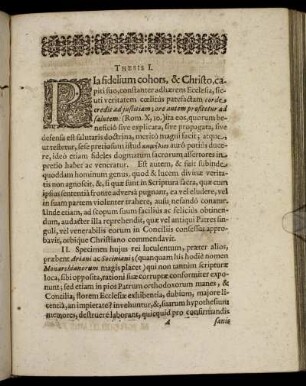 THESIS I.
PIa fidelium cohors, & Christo, ca-
piti suo, constanter adhærens Ecclesia, sic-
uti veritatem cœlitus patefactam corde
credit ad justitiam; ore autem profitetur ad
salutem: (Rom. X, 10.) ita eos, quorum be-
neficiò sive explicata, sive propagata, sive
defensa est salutaris doctrina, meritò magni facit; atque,
ut testetur, sese preciosum istud auro potius du-
cere, ideò etiam fideles dogmatum sacrorum assertores in
pretio haber ac veneratur. Est autem, & fuit subinde,
quoddam hominum genus, quod & lucem divinæ verita-
tis non agnoscit, & si quæ sunt in Scriptura sacra, quæ cum
ipsius sententiâ fronte adversâ pugnant, ea vel eludere, vel
in suam partem violenter trahere, ausu nefando conatur.
Unde etiam, ad scopum suum facilius ac felicius obtinen-
dum, audacter illa reprehendit, quæ vel antiqui Patres sin-
guli, vel venerabilis eorum in Conciliis consessus appro-
bavit, orbique Christiano commendavit.
II. Specimen hujus rei luculentum, præter alios,
præbent Ariani ac Sociniani; (quanquam his hodiè nomen
Monarchianorum magis placet) qui non tantùm scripturæ
loca, sibi opposita, rationi suæ corruptæ conformiter expo-
nunt; sed etiam in pios Patrum orthodoxorum manes, &
Concilia, florem Ecclesiæ exhibentia, dubium, majore li-
centiâ, an impietate? invehuntur, &, suarum hypothesium
memores, destruere laborant, quicquid pro confirmandis
A